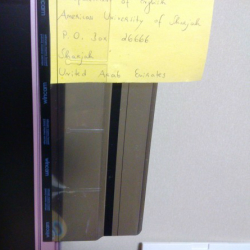 Department of
American University of Sharjah
P.O. Box 26666
Sharjah
United Arab Emirates